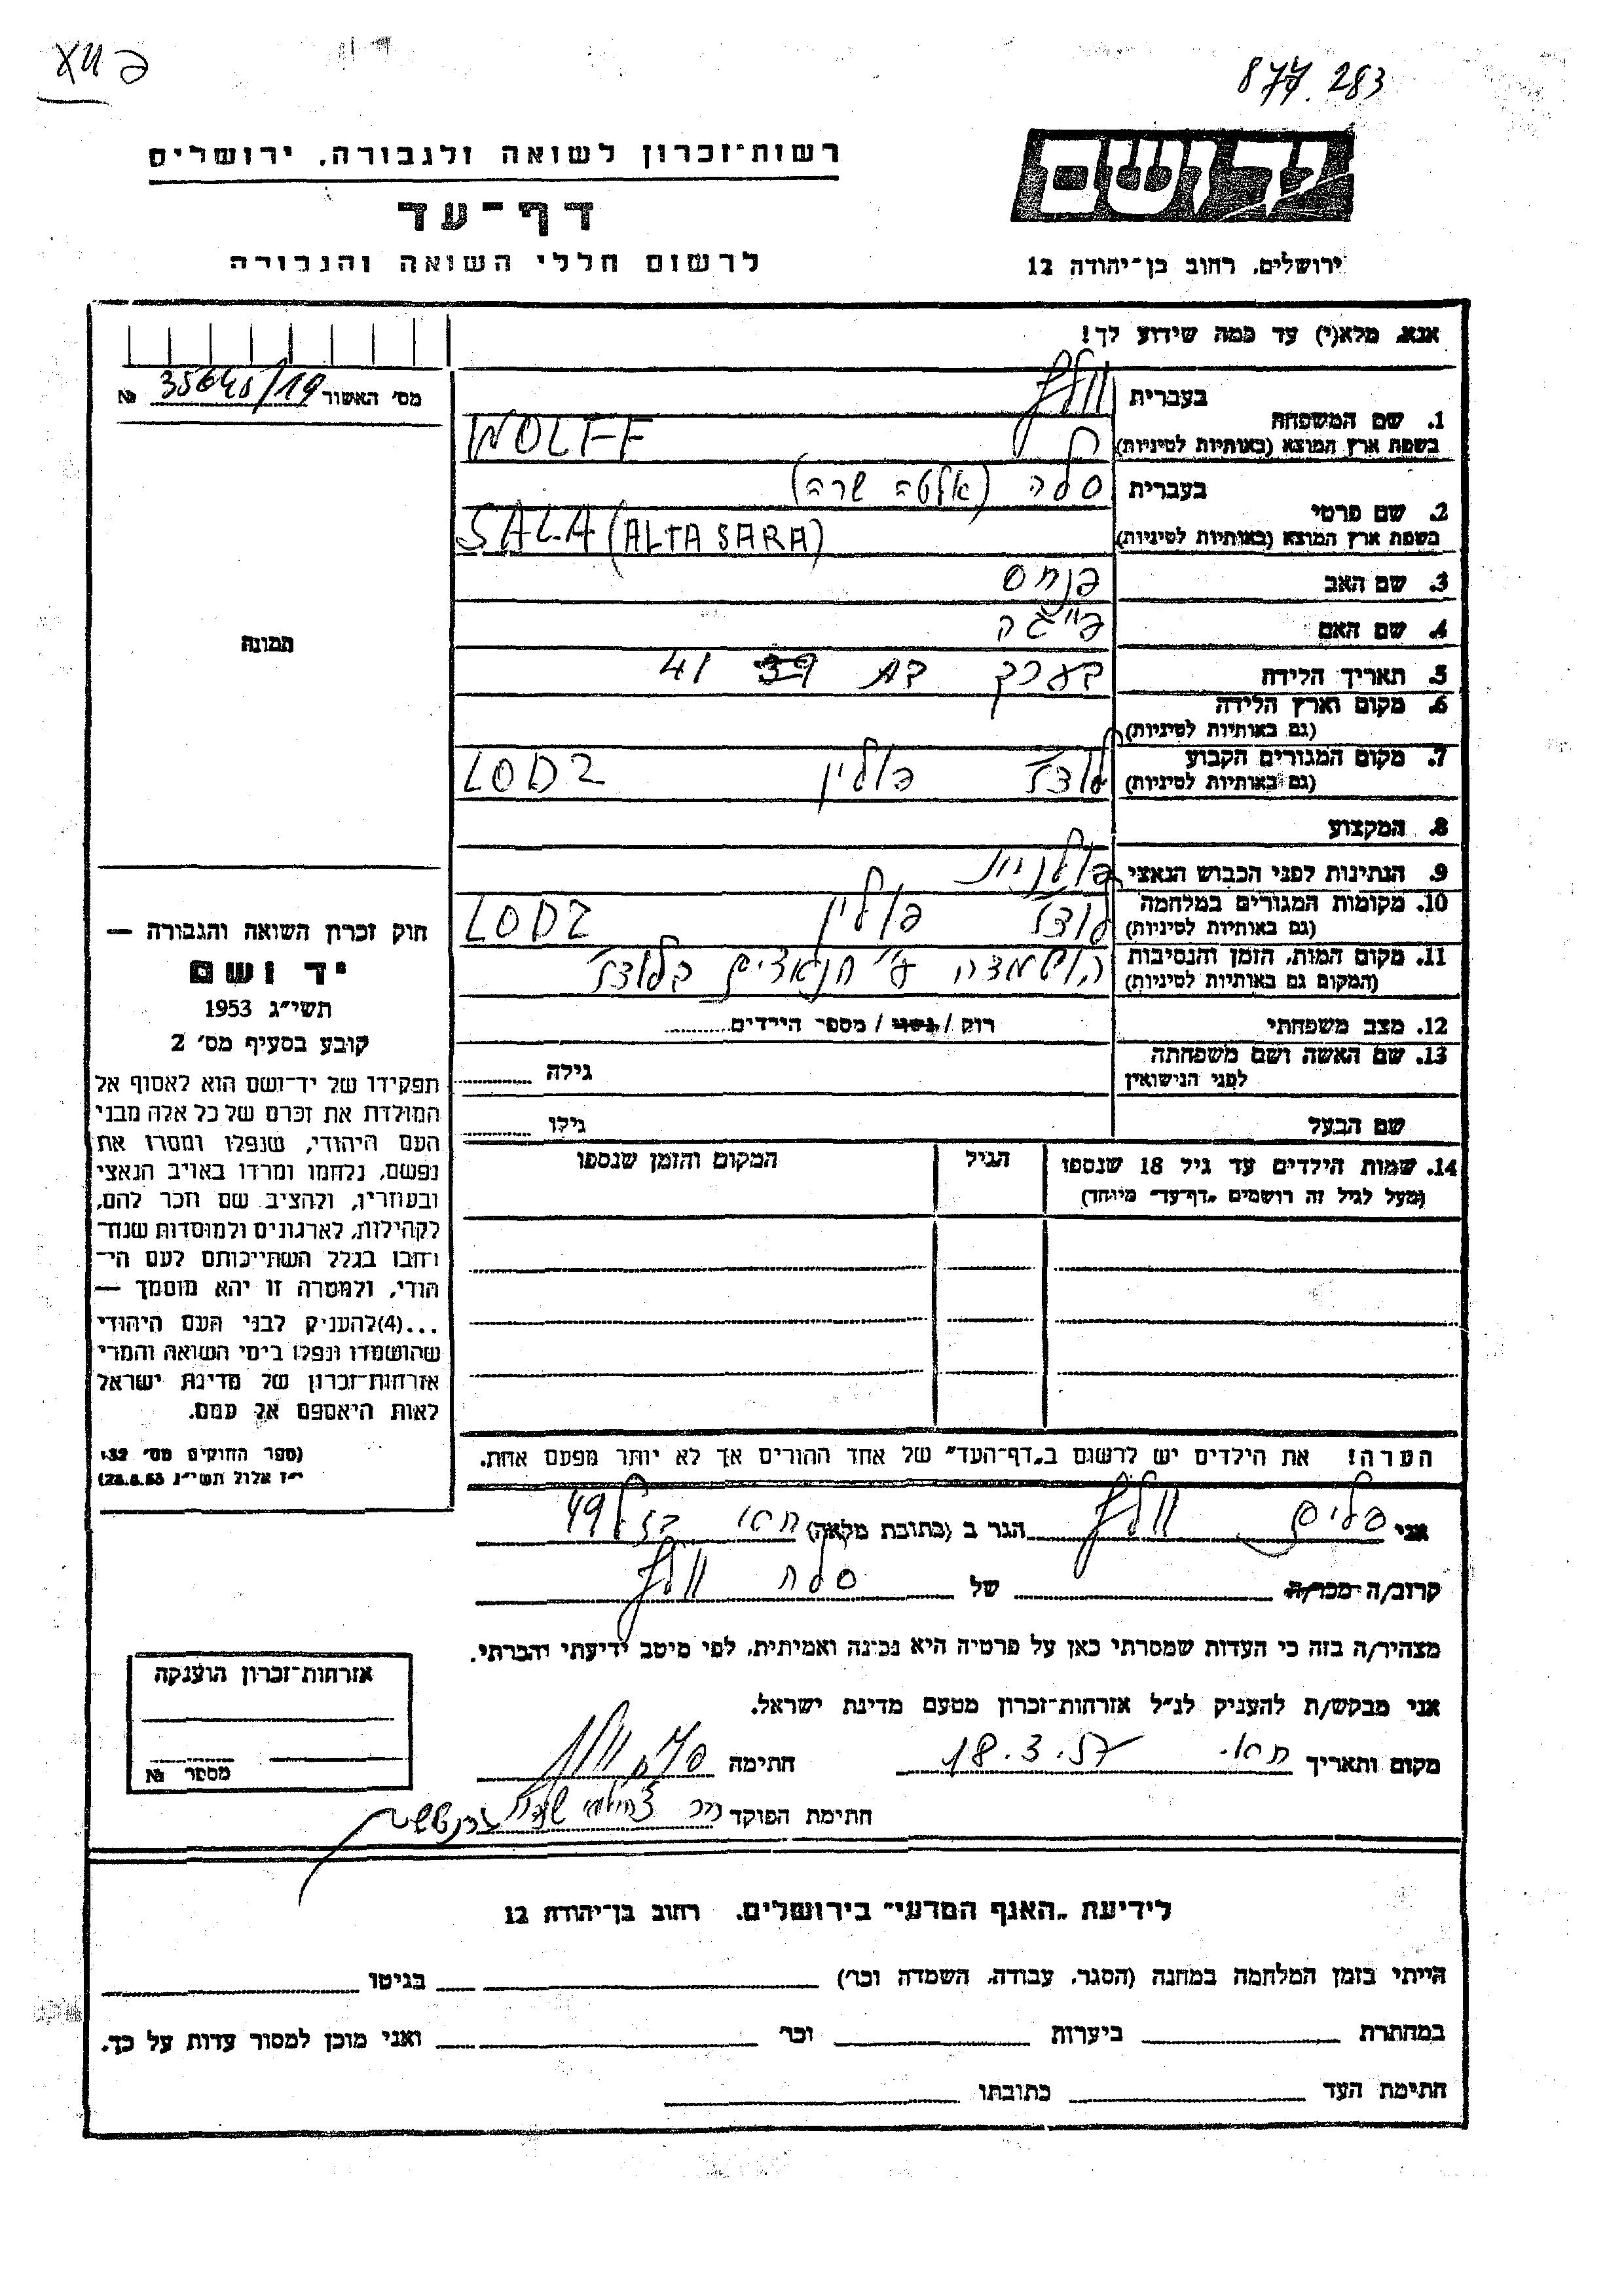 877.283
רשות־זכרון לשואה ולגבורה, ירושלים
דף־עד
לרשום חללי השואה והגבורה
ירושלים, רחוב בן־יהודה 12
אנא, מלא(י) עד כמה שידוע לך!
מס׳ האשור 35640/19 №
1. שם המשפחה
בעברית וולף
בשפת ארץ המוצא (באותיות לטיניות) WOLFF
2. שם פרטי
בעברית סלה (אלטה שרה)
בשפת ארץ המוצא (באותיות לטיניות) SALA (ALTA SARA)
3. שם האב פנחס
4. שם האם פייגה
5. תאריך הלידה בערך בת 39 41
6. מקום וארץ הלידה
(גם באותיות לטיניות)
7. מקום המגורים הקבוע
(גם באותיות לטיניות) לודז׳ פולין LODZ
8. המקצוע
9. הנתינות לפני הכבוש הנאצי פולנית
10. מקומות המגורים במלחמה
(גם באותיות לטיניות) לודז׳ פולין LODZ
11. מקום המות, הזמן והנסיבות
(המקום גם באותיות לטיניות) הושמדה ע״י הנאצים בלודז׳
12. מצב משפחתי רוק / נשוי / מספר הילדים
13. שם האשה ושם משפחתה
לפני הנישואין גילה
שם הבעל גילו
14. שמות הילדים עד גיל 18 שנספו
(מעל לגיל זה רושמים „דף־עד״ מיוחד)
הגיל
המקום והזמן שנספו
הערה! את הילדים יש לרשום ב„דף־העד״ של אחד ההורים אך לא יותר מפעם אחת.
תמונה
חוק זכרון השואה והגבורה —
יד ושם
תשי״ג 1953
קובע בסעיף מס׳ 2
תפקידו של יד־ושם הוא לאסוף אל
המולדת את זכרם של כל אלה מבני
העם היהודי, שנפלו ומסרו את
נפשם, נלחמו ומרדו באויב הנאצי
ובעוזריו, ולהציב שם וזכר להם,
לקהילות, לארגונים ולמוסדות שנח־
רחבו בגלל השתייכותם לעם הי־
הודי, ולמטרה זו יהא מוסמך —
...(4)להעניק לבני העם היהודי
שהושמדו ונפלו בימי השואה והמרי
אזרחות־זכרון של מדינת ישראל
לאות היאספם אל עמם.
(ספר החוקים מס׳ 132
י״ז אלול תשי״ג 28.8.53)
אני וולף הגר ב (כתובת מלאה) 49
קרוב/ה מכר/ה של סלה וולף
מצהיר/ה בזה כי העדות שמסרתי כאן על פרטיה היא נכונה ואמיתית, לפי מיטב ידיעתי והכרתי.
אני מבקש/ת להעניק לנ״ל אזרחות־זכרון מטעם מדינת ישראל.
מקום ותאריך 18.3.57 חתימה
חתימת הפוקד
אזרחות־זכרון הוענקה
מספר №
לידיעת „האגף המדעי״ בירושלים. רחוב בן־יהודה 12
הייתי בזמן המלחמה במחנה (הסגר, עבודה, השמדה וכר׳) בגיטו
במחתרת ביערות וכר׳ ואני מוכן למסור עדות על כך.
חתימת העד כתובתו